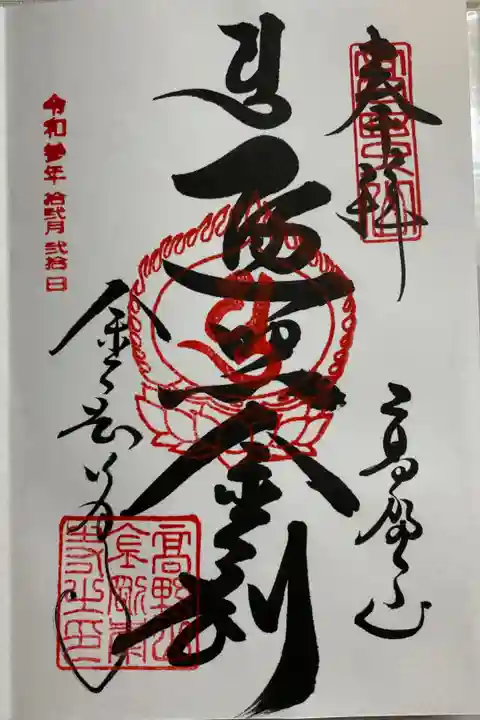 奉拝
高野山
遍照金剛
金剛峯寺
令和參年 拾弐月 弐拾日
高野山
金剛峯
寺之印